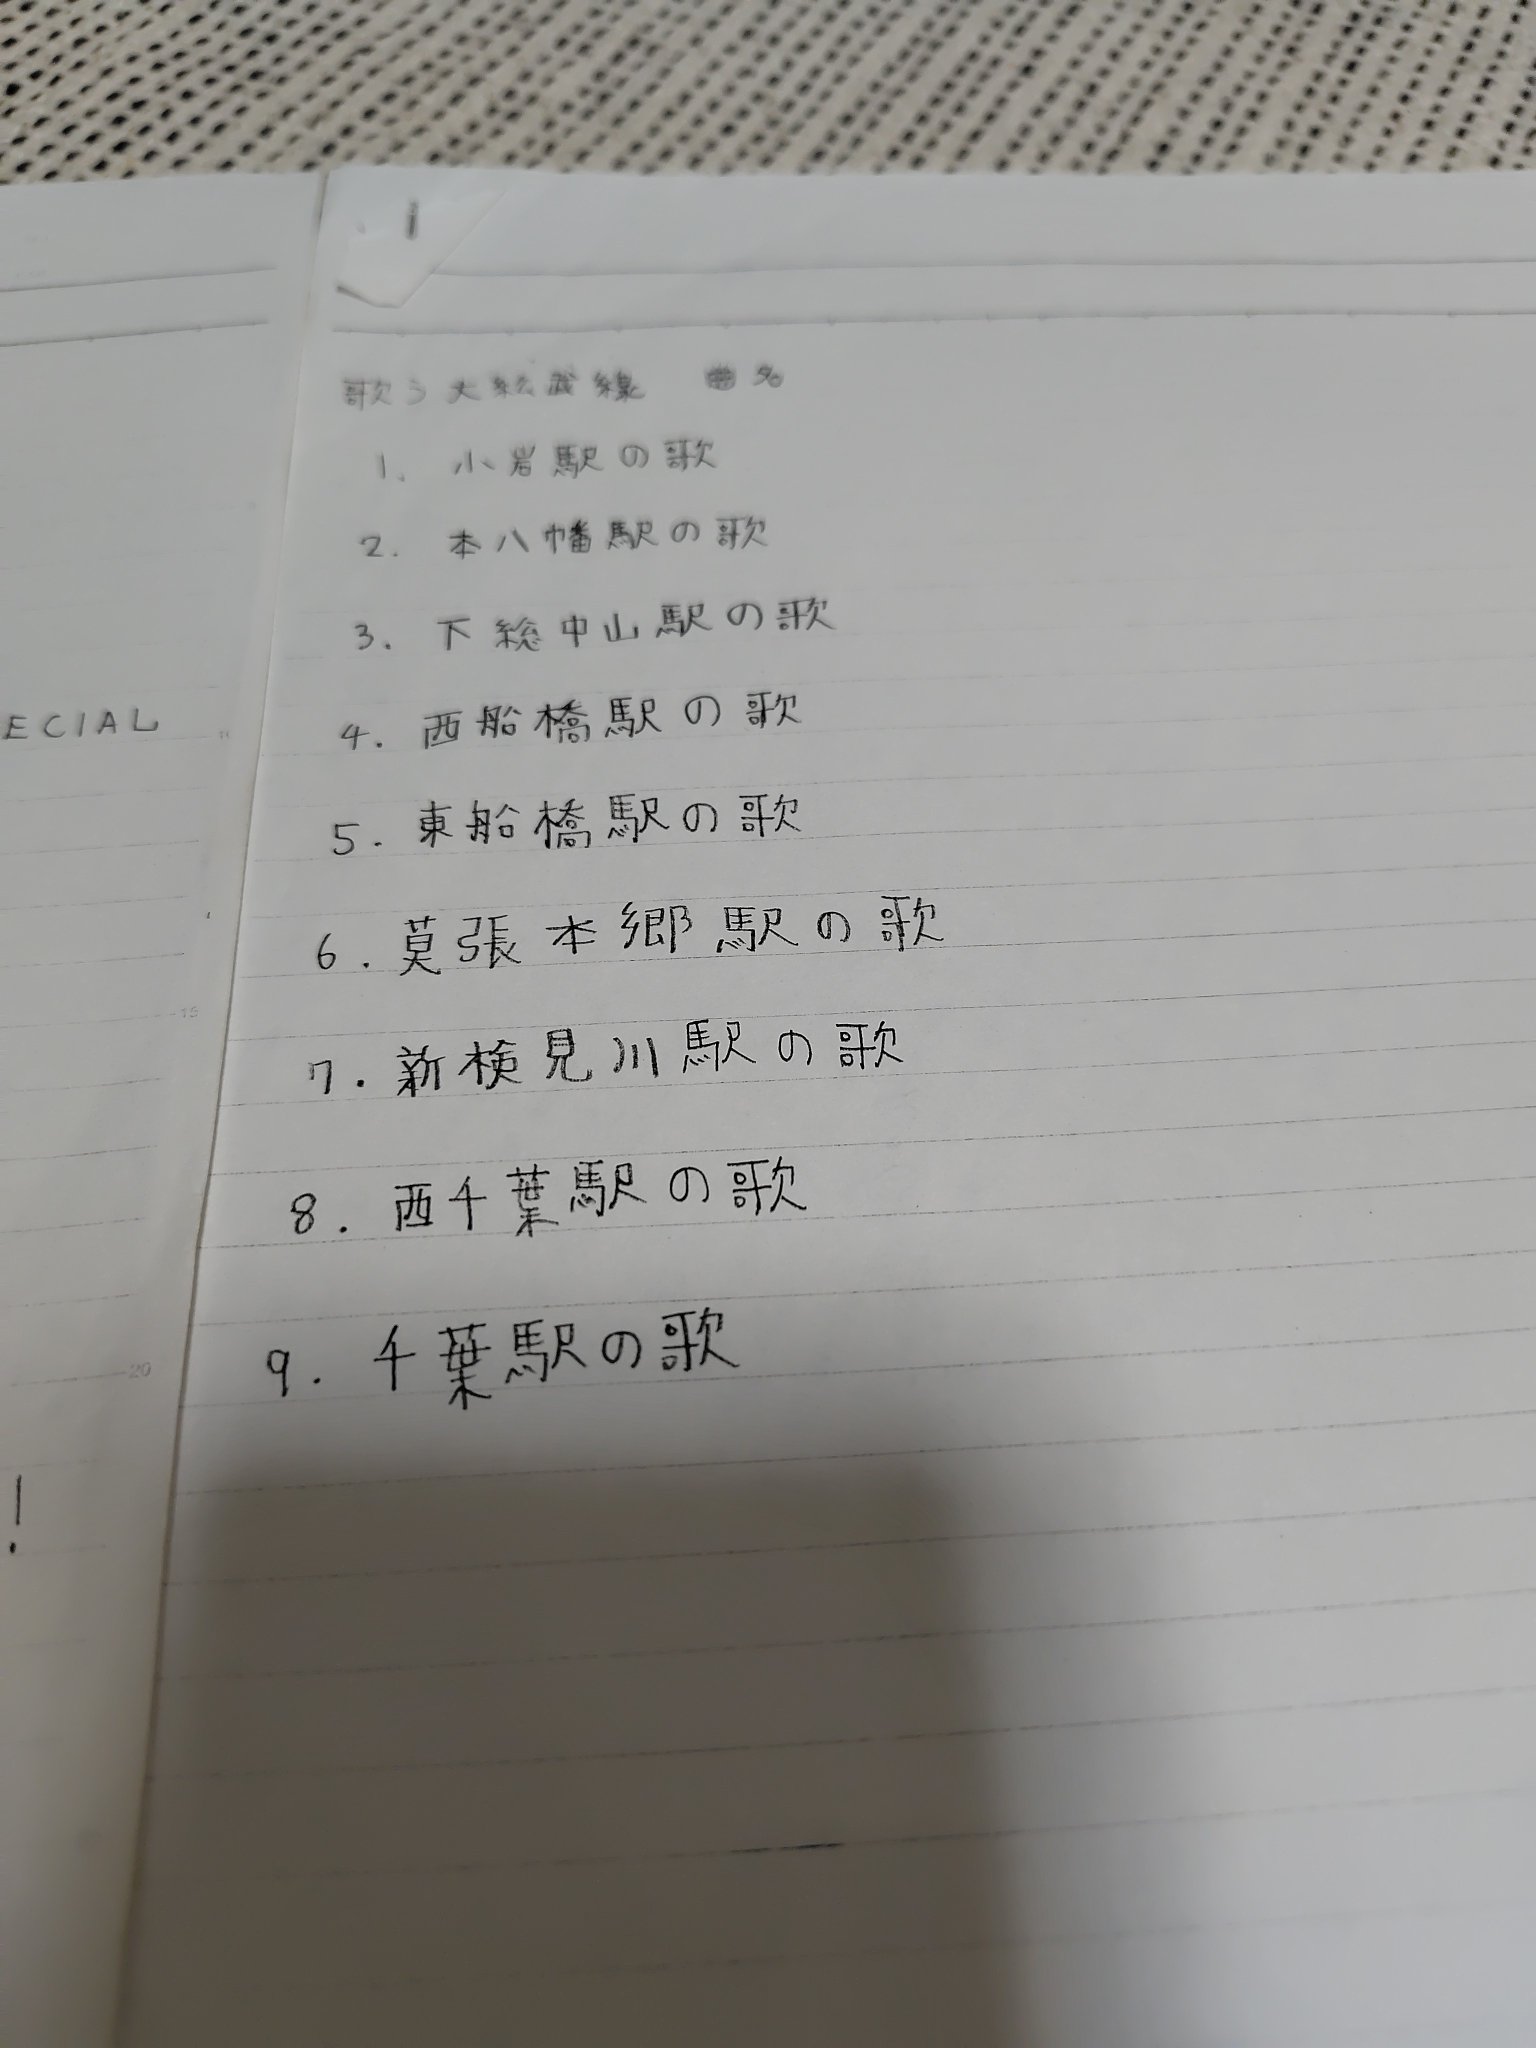 i
歌う大総武線 曲名
1. 小岩駅の歌
2. 本八幡駅の歌
3. 下総中山駅の歌
ECIAL
4. 西船橋駅の歌
5. 東船橋駅の歌
6. 莫張本郷駅の歌
15
7. 新検見川駅の歌
8. 西千葉駅の歌
9. 千葉駅の歌
20
!